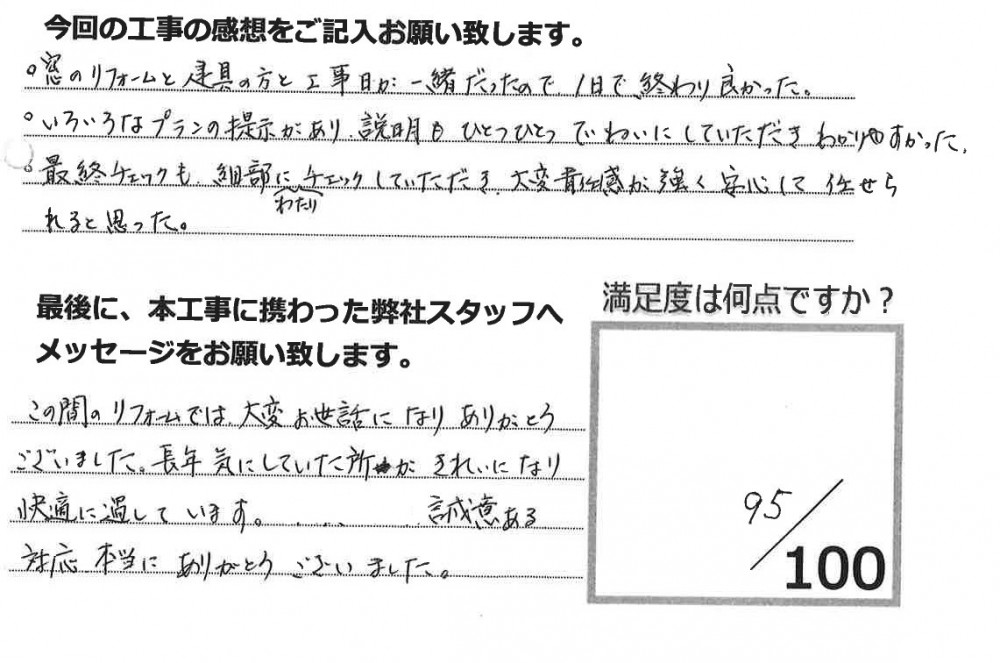 今回の工事の感想をご記入お願い致します。
○窓のリフォームと建具の方と工事日が一緒だったので1日で終わり良かった。
○いろいろなプランの提示があり、説明もひとつひとつていねいにしていただきわかりやすかった。
○最終チェックも、細部にわたりチェックしていただき、大変責任感が強く安心して任せら
れると思った。
最後に、本工事に携わった弊社スタッフへ
メッセージをお願い致します。
この間のリフォームでは、大変お世話になりありがとう
ございました。長年気にしていた所がきれいになり
快適に過しています。 誠意ある
対応本当にありがとうございました。
満足度は何点ですか？
95/100